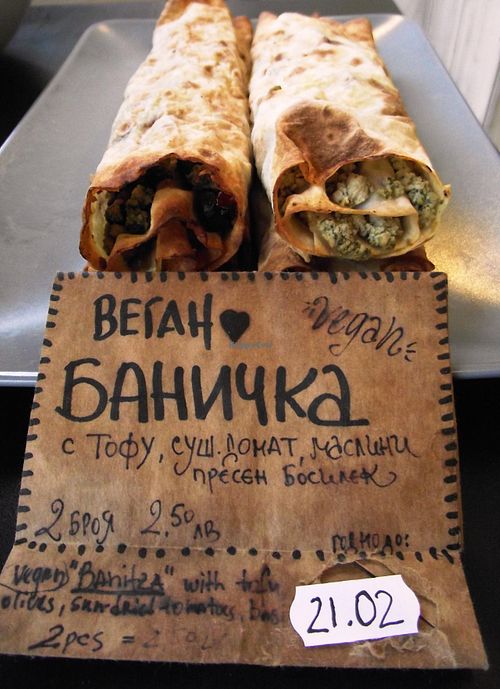 ВЕГАН ♥
vegan
БАНИЧКА
с ТОФУ, СУШ. ДОМАТ, МАСЛИНИ
ПРЕСЕН БОСИЛЕК
2 БРОЯ 2.50 ЛВ
ГОДНО ДО:
vegan "BANITZA" with tofu
olives, sundried tomatoes,
2 pcs =
21.02